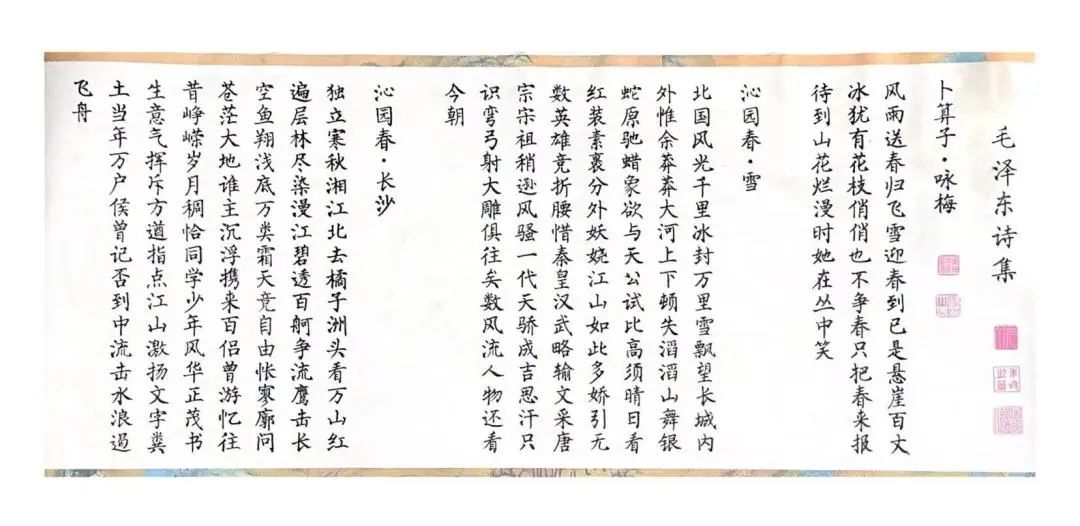 毛泽东诗集
卜算子·咏梅
风雨送春归飞雪迎春到已是悬崖百丈
冰犹有花枝俏俏也不争春只把春来报
待到山花烂漫时她在丛中笑
沁园春·雪
北国风光千里冰封万里雪飘望长城内
外惟余莽莽大河上下顿失滔滔山舞银
蛇原驰蜡象欲与天公试比高须晴日看
红装素裹分外妖娆江山如此多娇引无
数英雄竞折腰惜秦皇汉武略输文采唐
宗宋祖稍逊风骚一代天骄成吉思汗只
识弯弓射大雕俱往矣数风流人物还看
今朝
沁园春·长沙
独立寒秋湘江北去橘子洲头看万山红
遍层林尽染漫江碧透百舸争流鹰击长
空鱼翔浅底万类霜天竞自由怅寥廓问
苍茫大地谁主沉浮携来百侣曾游忆往
昔峥嵘岁月稠恰同学少年风华正茂书
生意气挥斥方遒指点江山激扬文字粪
土当年万户侯曾记否到中流击水浪遏
飞舟